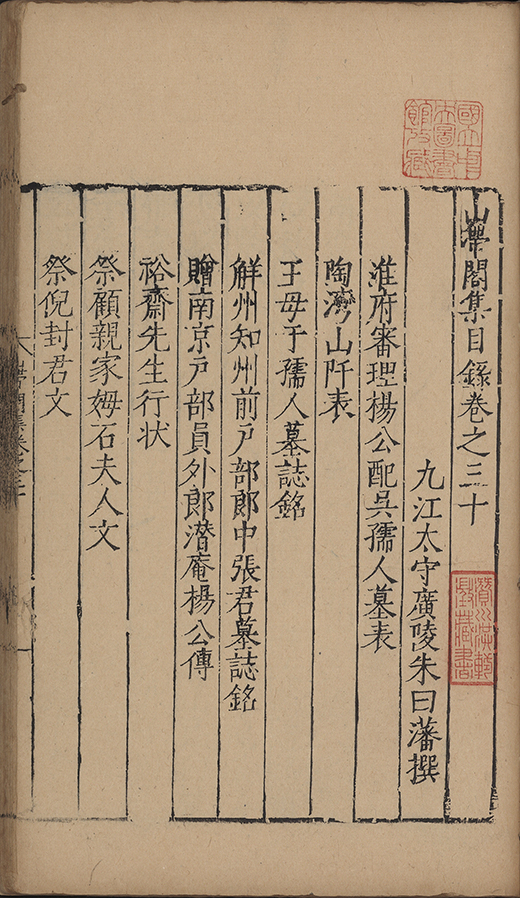 山帶閣集目錄卷之三十
九江太守廣陵朱曰藩撰
淮府審理楊公配吳孺人墓表
陶灣山阡表
王母于孺人墓誌銘
解州知州前戶部郎中張君墓誌銘
贈南京戶部員外郎潛庵楊公傳
裕齋先生行狀
祭顧親家姆石夫人文
祭倪封君文
國立中央圖書館收藏